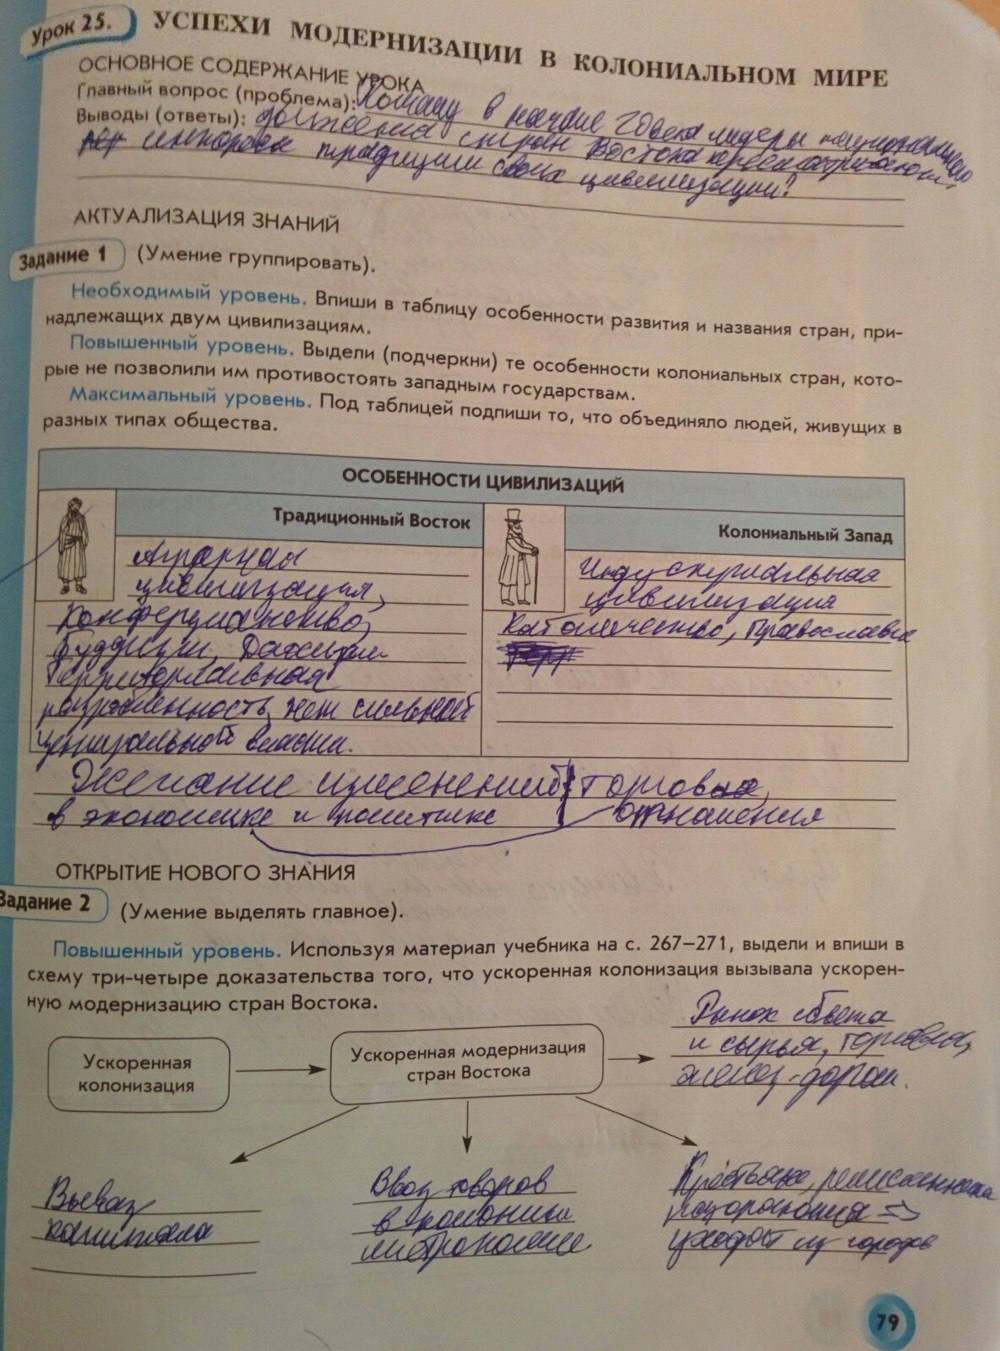 Урок 25.
УСПЕХИ МОДЕРНИЗАЦИИ В КОЛОНИАЛЬНОМ МИРЕ
ОСНОВНОЕ СОДЕРЖАНИЕ УРОКА
Главный вопрос (проблема): Почему в начале 20 века лидеры национального
Выводы (ответы): движения стран Востока пересматривают
многовековые традиции своих цивилизаций?
АКТУАЛИЗАЦИЯ ЗНАНИЙ
Задание 1 (Умение группировать).
Необходимый уровень. Впиши в таблицу особенности развития и названия стран, при-
надлежащих двум цивилизациям.
Повышенный уровень. Выдели (подчеркни) те особенности колониальных стран, кото-
рые не позволили им противостоять западным государствам.
Максимальный уровень. Под таблицей подпиши то, что объединяло людей, живущих в
разных типах общества.
ОСОБЕННОСТИ ЦИВИЛИЗАЦИЙ
Традиционный Восток
Аграрная
цивилизация,
Конфуцианство,
Буддизм, Даосизм
Территориальная
раздробленность, нет сильной
центральной власти.
Колониальный Запад
Индустриальная
цивилизация
Католичество, Православие
Желание изменений Торговые
в экономике и политике отношения
ОТКРЫТИЕ НОВОГО ЗНАНИЯ
Задание 2 (Умение выделять главное).
Повышенный уровень. Используя материал учебника на с. 267–271, выдели и впиши в
схему три-четыре доказательства того, что ускоренная колонизация вызывала ускорен-
ную модернизацию стран Востока.
Ускоренная
колонизация
Ускоренная модернизация
стран Востока
Рынок сбыта
и сырья, торговля,
желез. дороги.
Вывоз
капитала
Ввоз товаров
в колонии
метрополией
Крестьяне, ремесленники
разоряются =>
уходят из городов
79